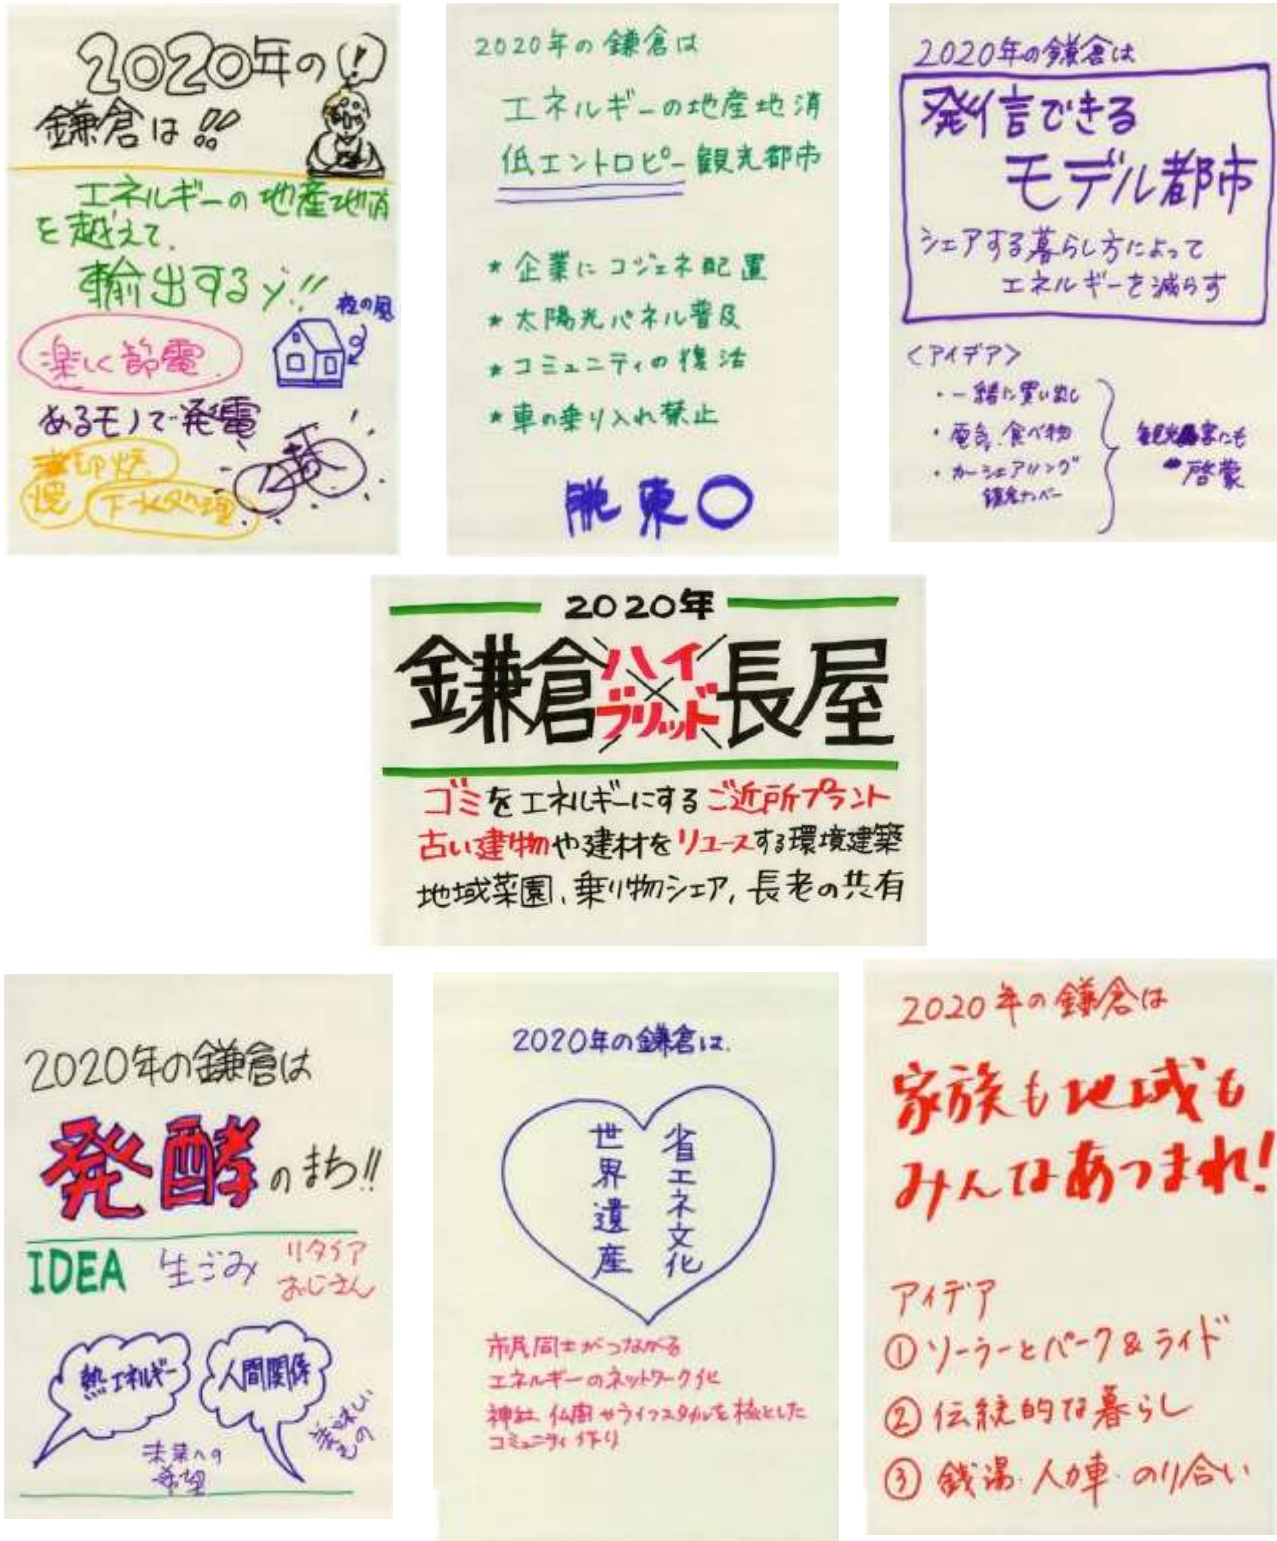 2020年の
鎌倉は!!
エネルギーの地産地消
を越えて、
輸出するゾ!!
楽しく節電
夜の風
あるモノで発電
焼却炉
下水処理
2020年の鎌倉は
エネルギーの地産地消
低エントロピー観光都市
* 企業にコジェネ配置
* 太陽光パネル普及
* コミュニティの復活
* 車の乗り入れ禁止
脱東○
2020年の鎌倉は
発信できる
モデル都市
シェアする暮らし方によって
エネルギーを減らす
<アイデア>
・一緒に買い出し
・電気、食べ物
・カーシェアリング
鎌倉ナンバー
観光客にも
啓蒙
2020年
鎌倉ハイブリッド長屋
ゴミをエネルギーにするご近所プラント
古い建物や建材をリユースする環境建築
地域菜園、乗り物シェア、長老の共有
2020年の鎌倉は
発酵のまち!!
IDEA 生ごみ リタイア
おじさん
熱エネルギー
人間関係
未来への
希望
美味しい
もの
2020年の鎌倉は、
省エネ文化
世界遺産
市民同士がつながる
エネルギーのネットワーク化
神社仏閣やライフスタイルを核とした
コミュニティ作り
2020年の鎌倉は
家族も地域も
みんなあつまれ!
アイデア
① ソーラーとパーク&ライド
② 伝統的な暮らし
③ 銭湯・人力車・のり合い